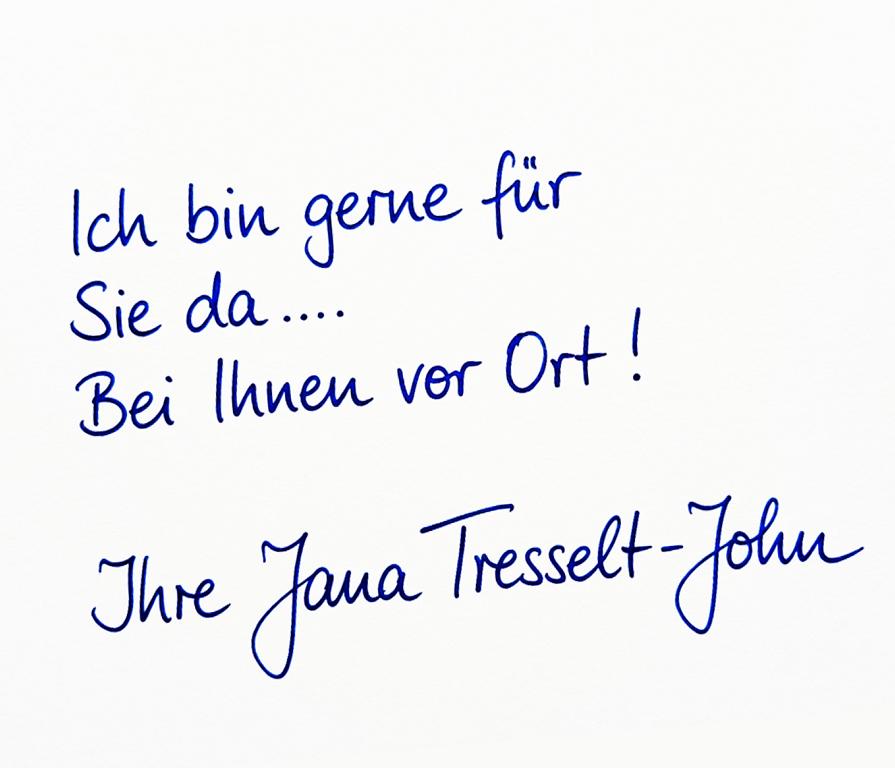 Ich bin gerne für
Sie da....
Bei Ihnen vor Ort!
Ihre Jana Tresselt-John